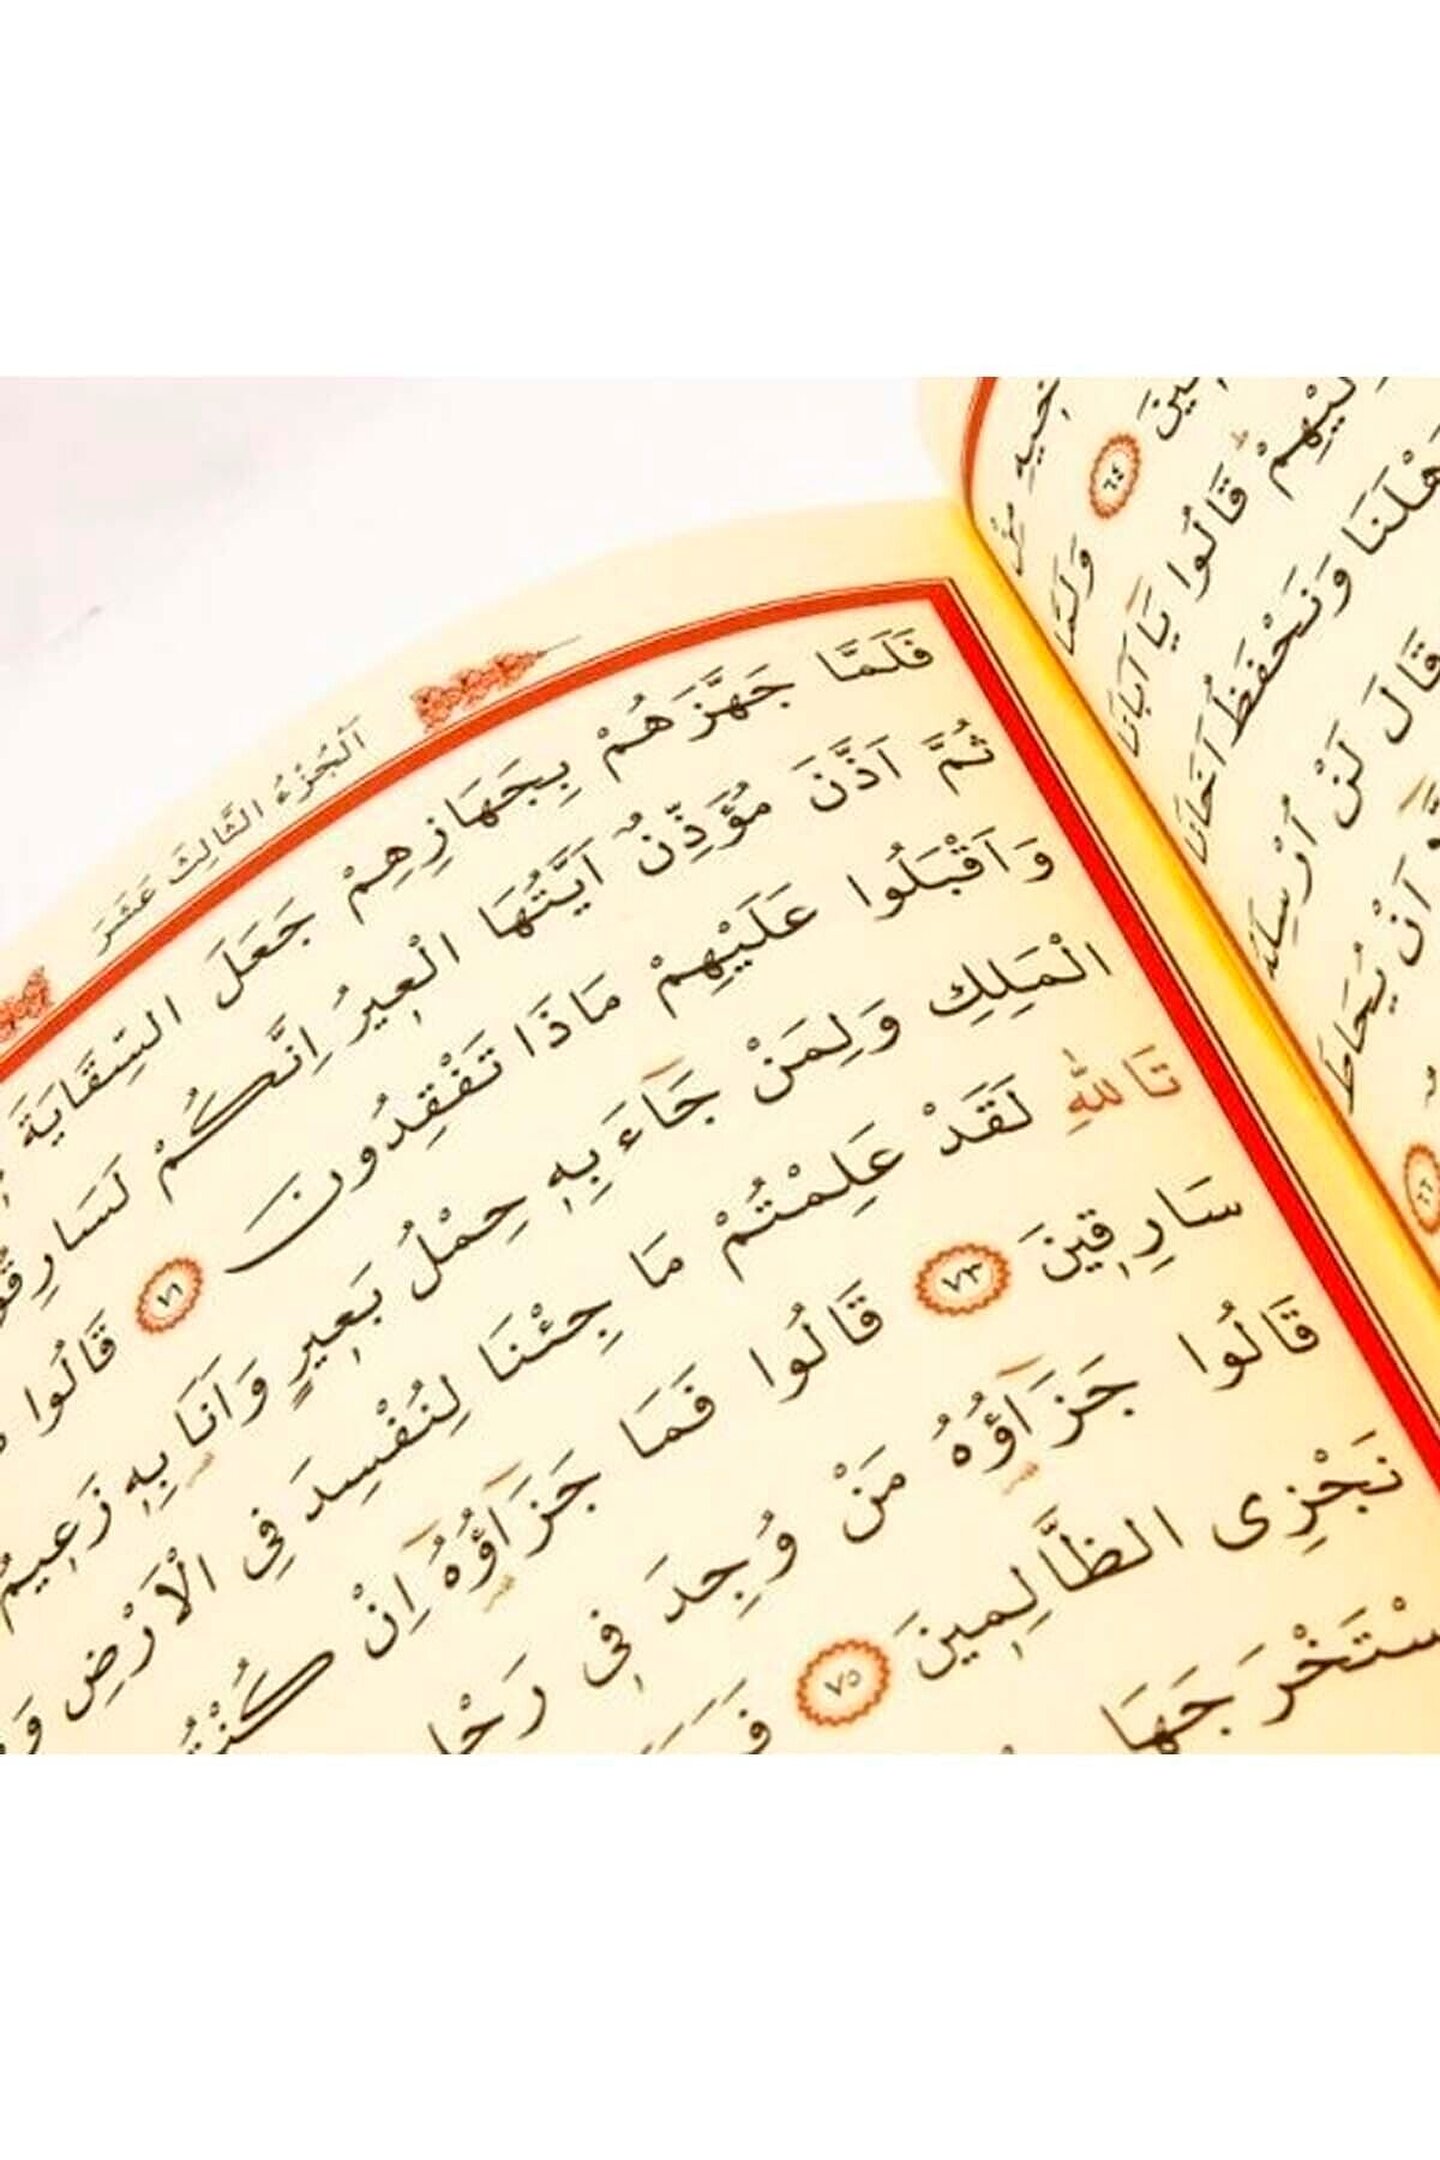 اَلْجُزْءُ الثَّالِثَ عَشَرَ
فَلَمَّا جَهَّزَهُمْ بِجَهَازِهِمْ جَعَلَ السِّقَايَةَ
ثُمَّ اَذَّنَ مُؤَذِّنٌ اَيَّتُهَا الْعِيرُ اِنَّكُمْ لَسَارِقُو
وَاَقْبَلُوا عَلَيْهِمْ مَاذَا تَفْقِدُونَ ﴿٧١﴾ قَالُوا
الْمَلِكِ وَلِمَنْ جَٓاءَ بِه۪ حِمْلُ بَع۪يرٍ وَاَنَا بِه۪ زَع۪يمٌ
تَاللّٰهِ لَقَدْ عَلِمْتُمْ مَا جِئْنَا لِنُفْسِدَ فِي الْاَرْضِ وَ
سَارِق۪ينَ ﴿٧٣﴾ قَالُوا فَمَا جَزَٓاؤُ۬هُٓ اِنْ كُنْتُ
قَالُوا جَزَٓاؤُ۬هُ مَنْ وُجِدَ ف۪ي رَحْلِ
نَجْزِي الظَّالِم۪ينَ ﴿٧٥﴾
سْتَخْرَجَهَا
اَخ۪يهِ
﴿٦٤﴾ وَلَمَّا
لَيْهِمْ قَالُوا يَٓا اَبَانَا
هْلَنَا وَنَحْفَظُ اَخَانَا
قَالَ لَنْ اُرْسِلَهُ
اَنْ يُحَاطَ
﴿٦٦﴾